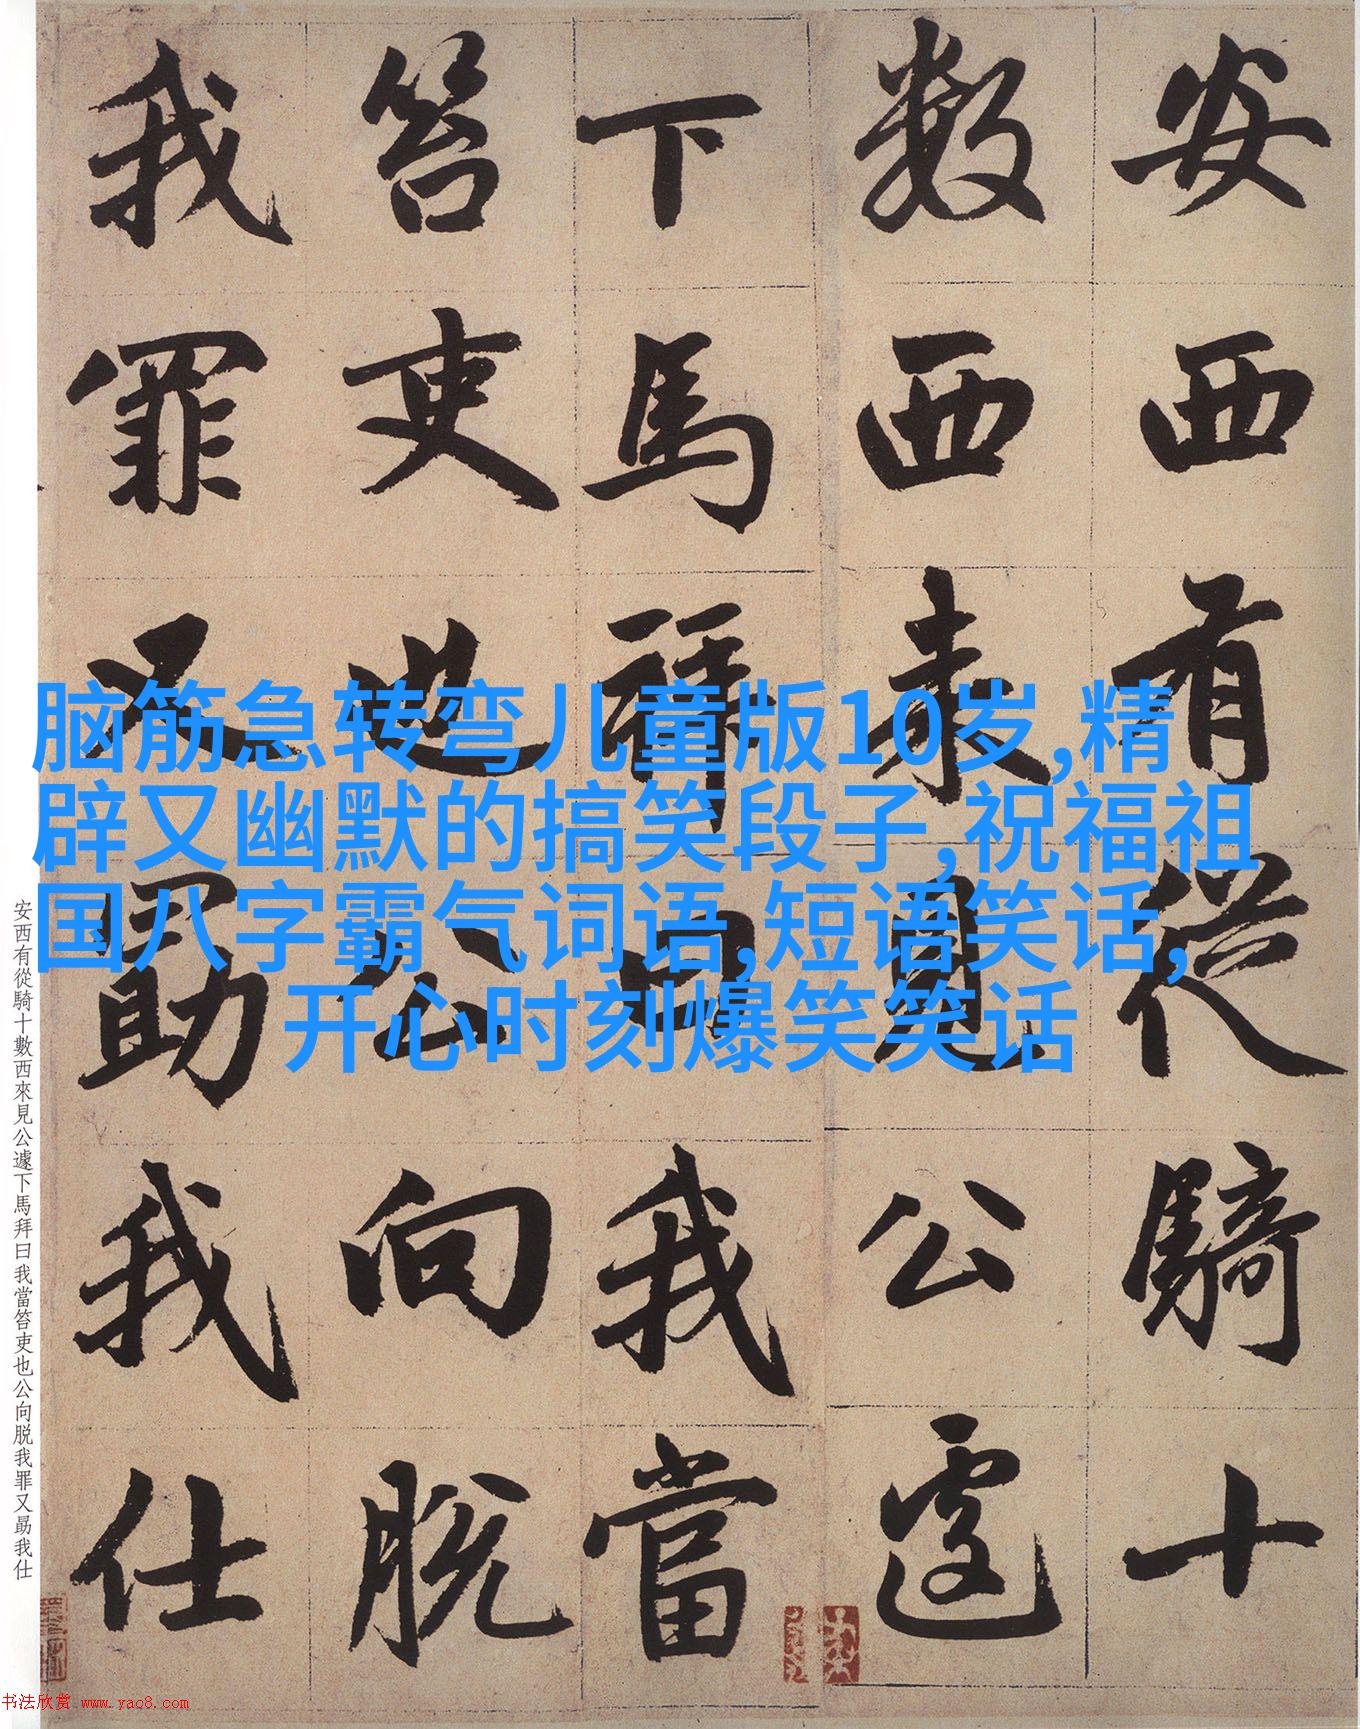 安西有從騎十
數西来見公遽
下馬拜曰我當
笞吏也公向脱
我罪又勗我仕
脑筋急转弯儿童版10岁,精
辟又幽默的搞笑段子,祝福祖
国八字霸气词语,短语笑话,
开心时刻爆笑笑话
安西有從騎十數西來見公遽下馬拜曰我當笞吏也公向脱我罪又勗我仕
书法欣赏 www.yac8.com